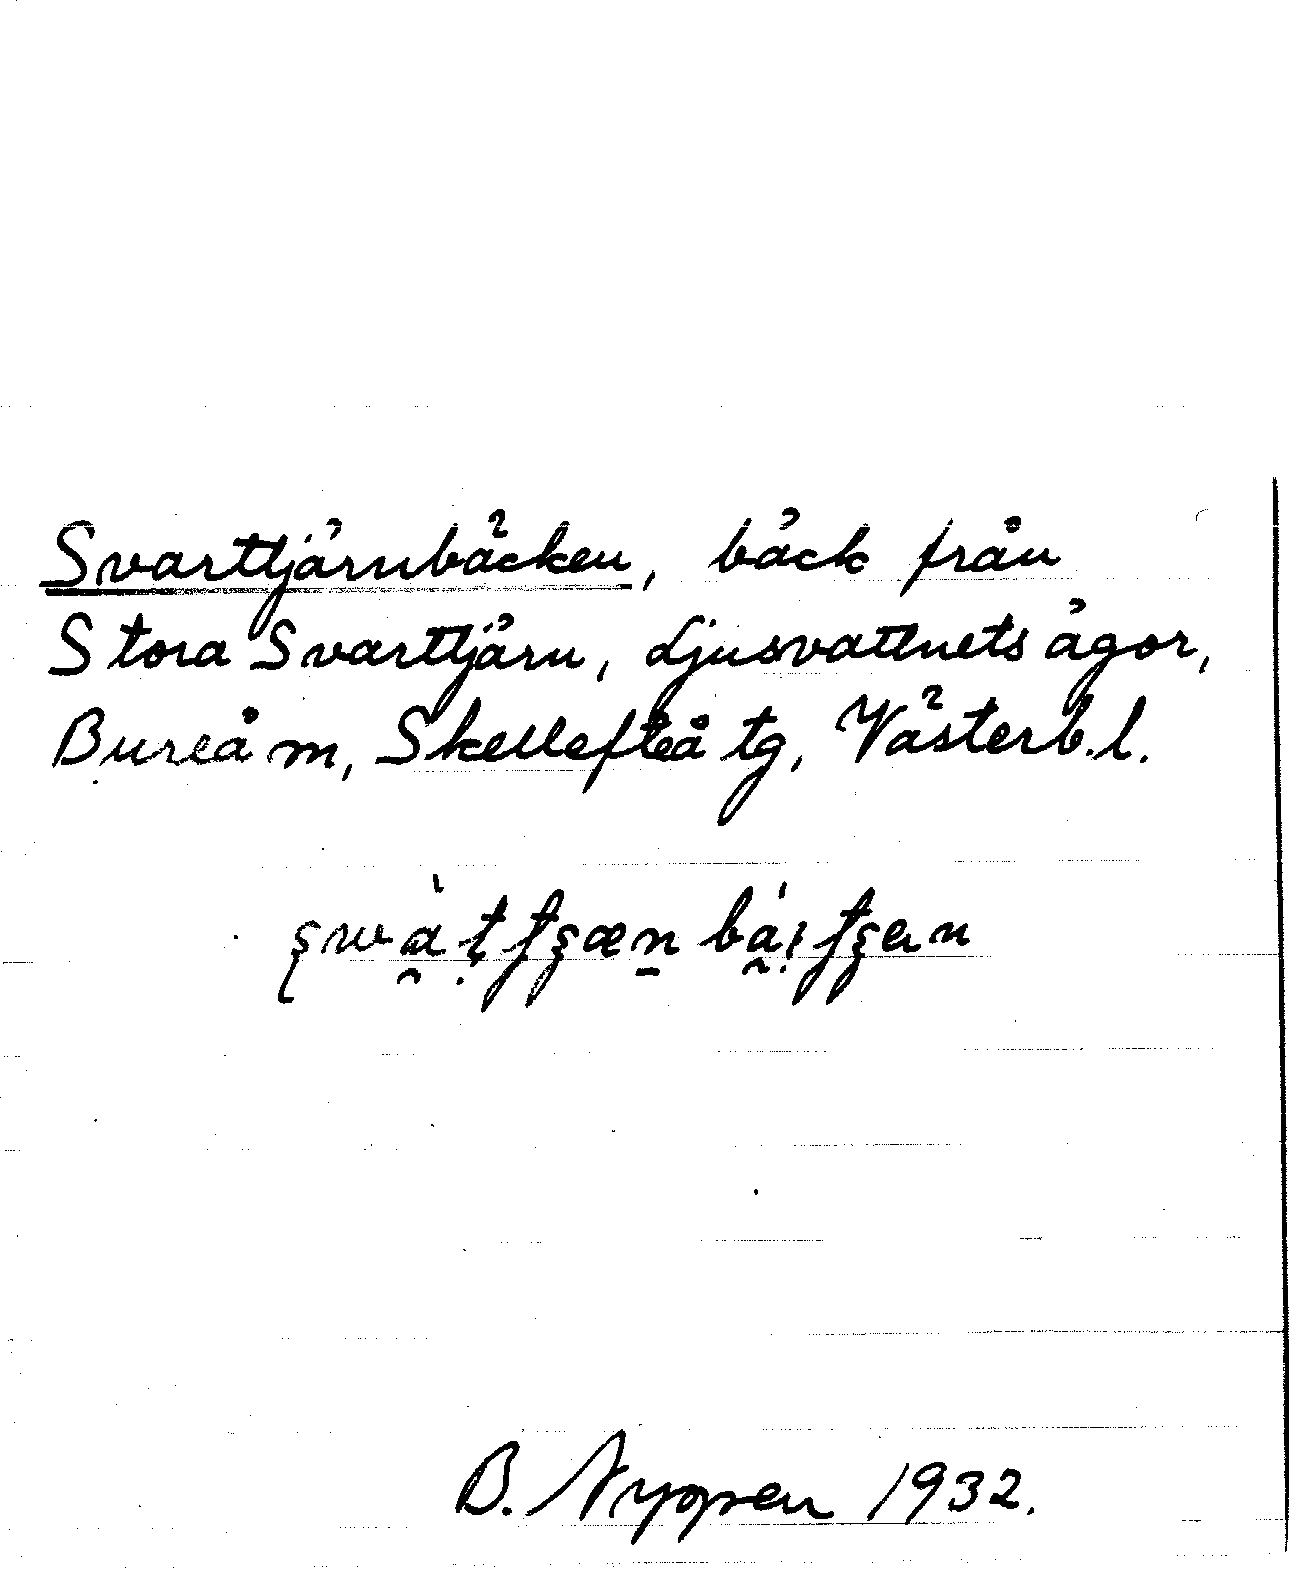 Svarttjärnbäcken, bäck från
Stora Svarttjärn, Ljusvattnets ägor,
Bureå m, Skellefteå tg, Västerb.l.
B. Nyppen 1932.